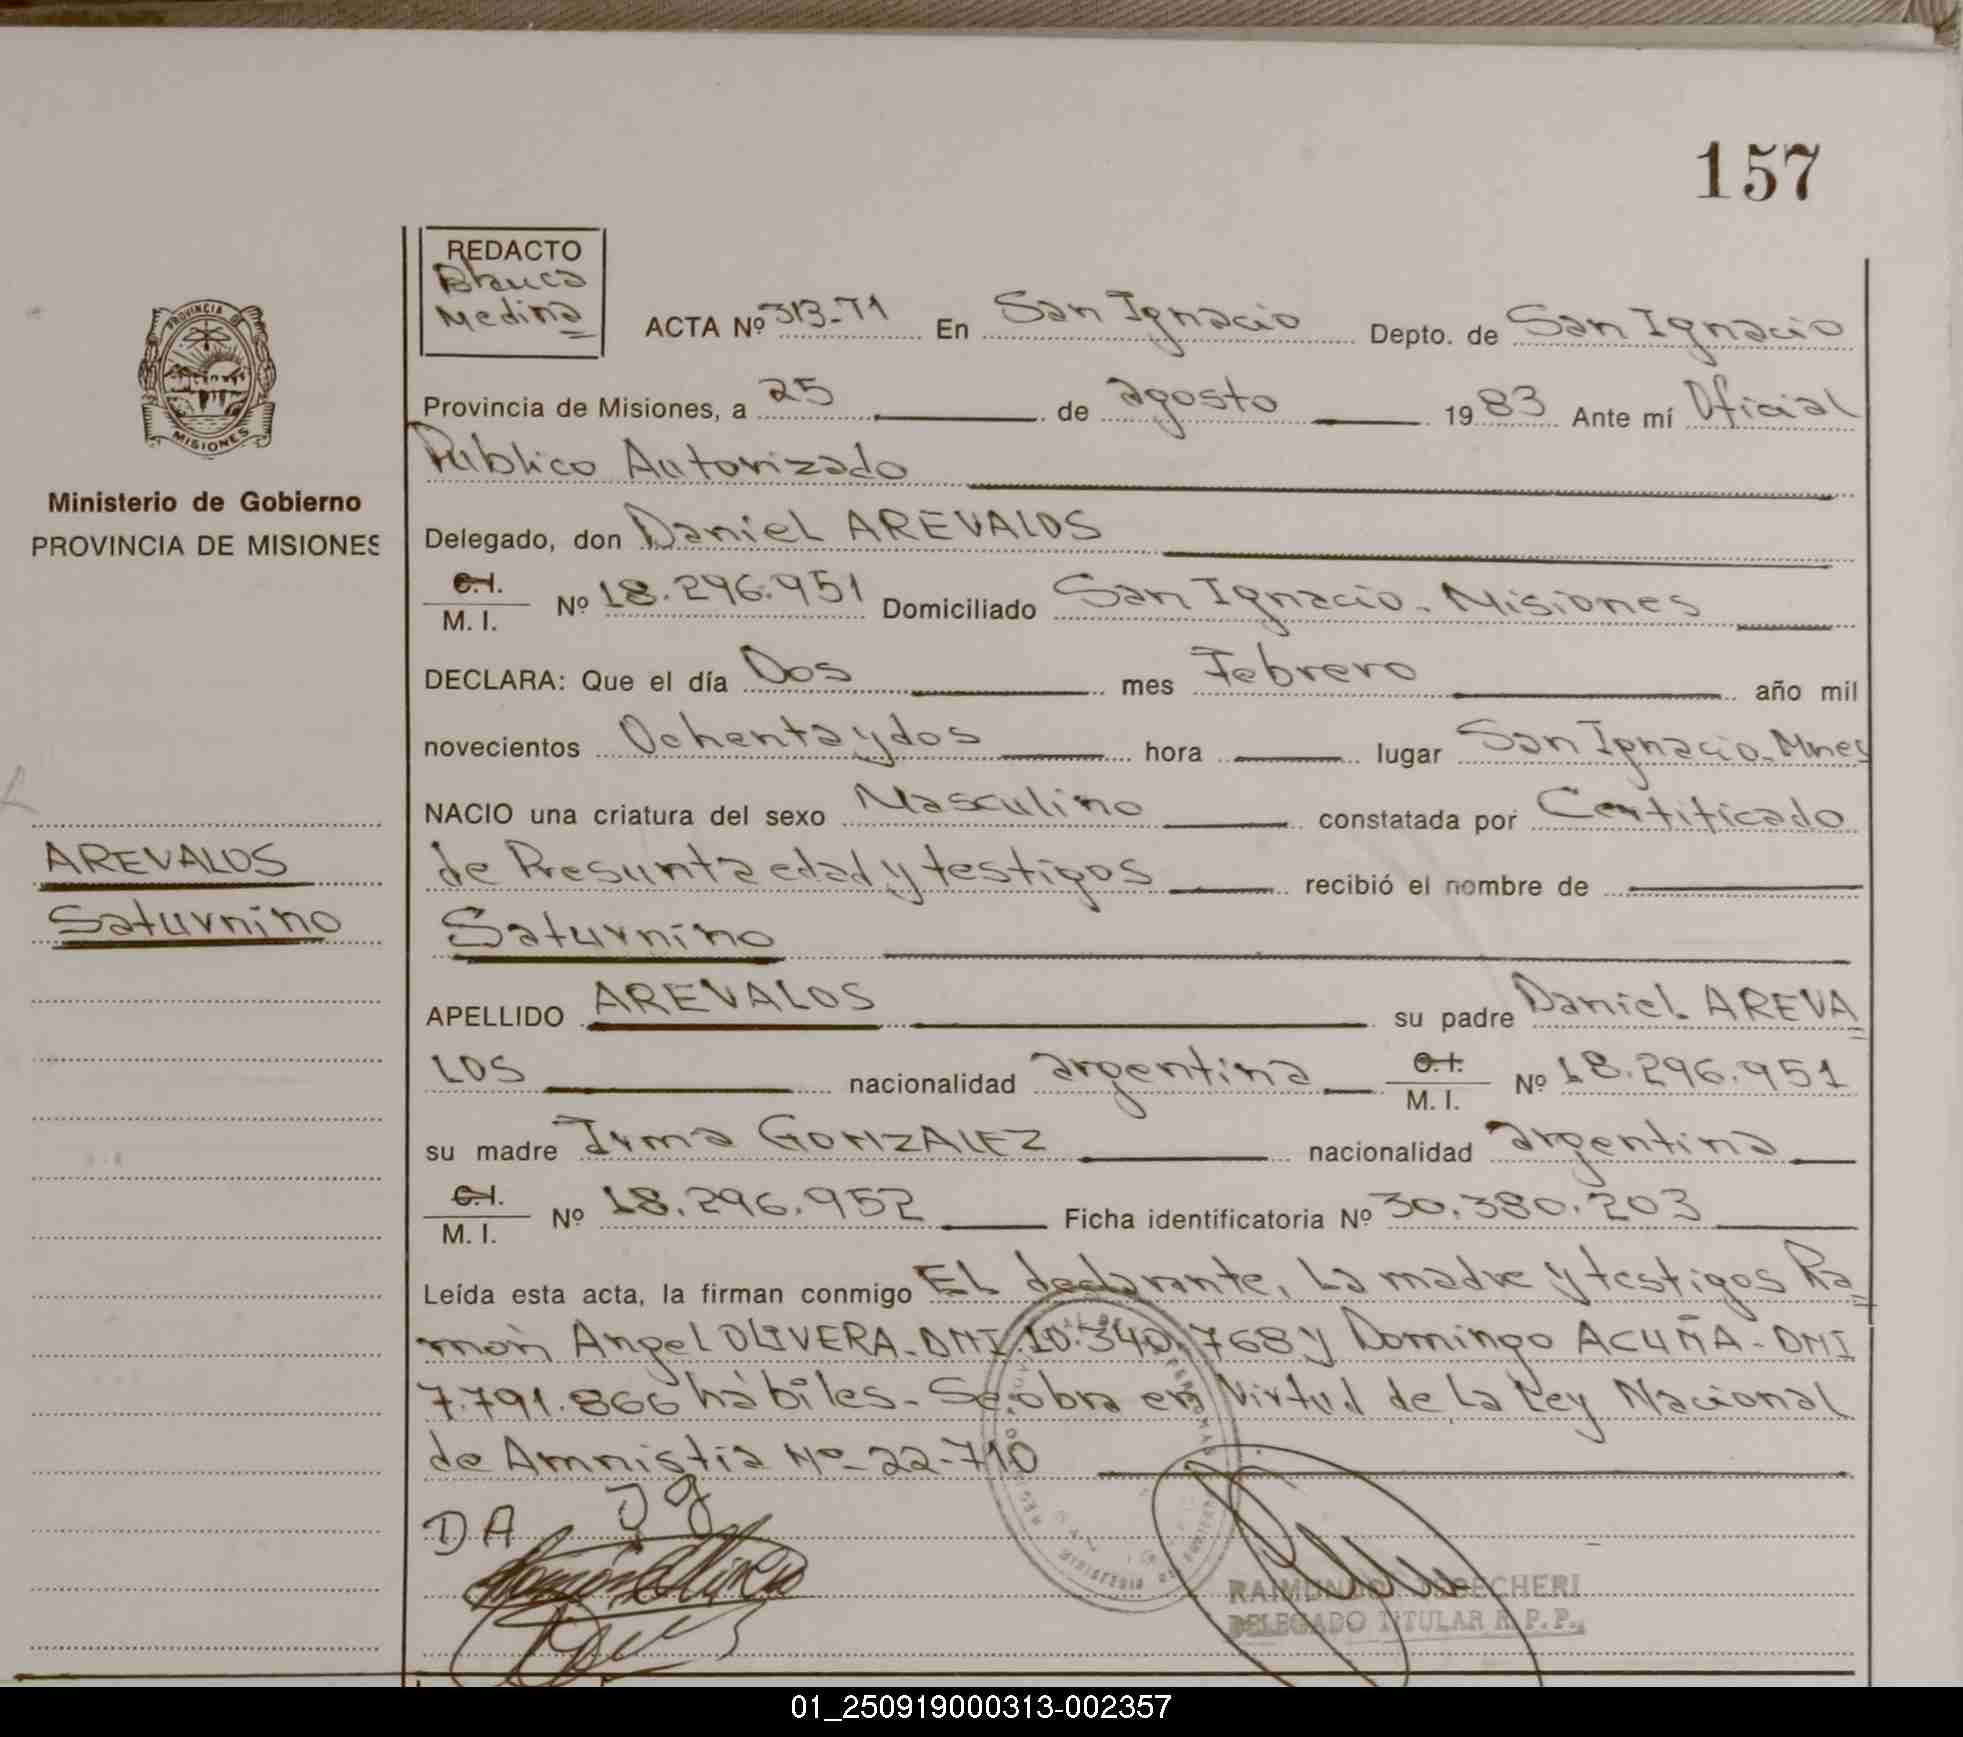 157
REDACTO
Blanca
Medina
ACTA Nº 313-71 En San Ignacio Depto. de San Ignacio
PROVINCIA DE
MISIONES
Provincia de Misiones, a 25 de agosto 1983 Ante mí Oficial
Público Autorizado
Ministerio de Gobierno
PROVINCIA DE MISIONES
Delegado, don Daniel AREVALOS
C.I.
M. I. Nº 18.296.951 Domiciliado San Ignacio. Misiones
DECLARA: Que el día Dos mes Febrero año mil
novecientos Ochentaydos hora lugar San Ignacio. Mnes
NACIO una criatura del sexo Masculino constatada por Certificado
de Presunta edad y testigos recibió el nombre de
AREVALOS
Saturnino
Saturnino
APELLIDO AREVALOS su padre Daniel AREVA
LOS nacionalidad argentina C.I. M. I. Nº 18.296.951
su madre Irma GONZALEZ nacionalidad argentina
C.I.
M. I. Nº 18.296.952 Ficha identificatoria Nº 30.380.203
Leída esta acta, la firman conmigo El declarante, La madre y testigos Ra
món Angel OLIVERA. DNI. 10.340.768 y Domingo ACUÑA. DNI
7.791.866 hábiles. Se obra en Virtud de La Ley Nacional
de Amnistia Nº 22-710
DA Jg
RAIMUNDO
DELEGADO TITULAR R.P.P.
01_250919000313-002357